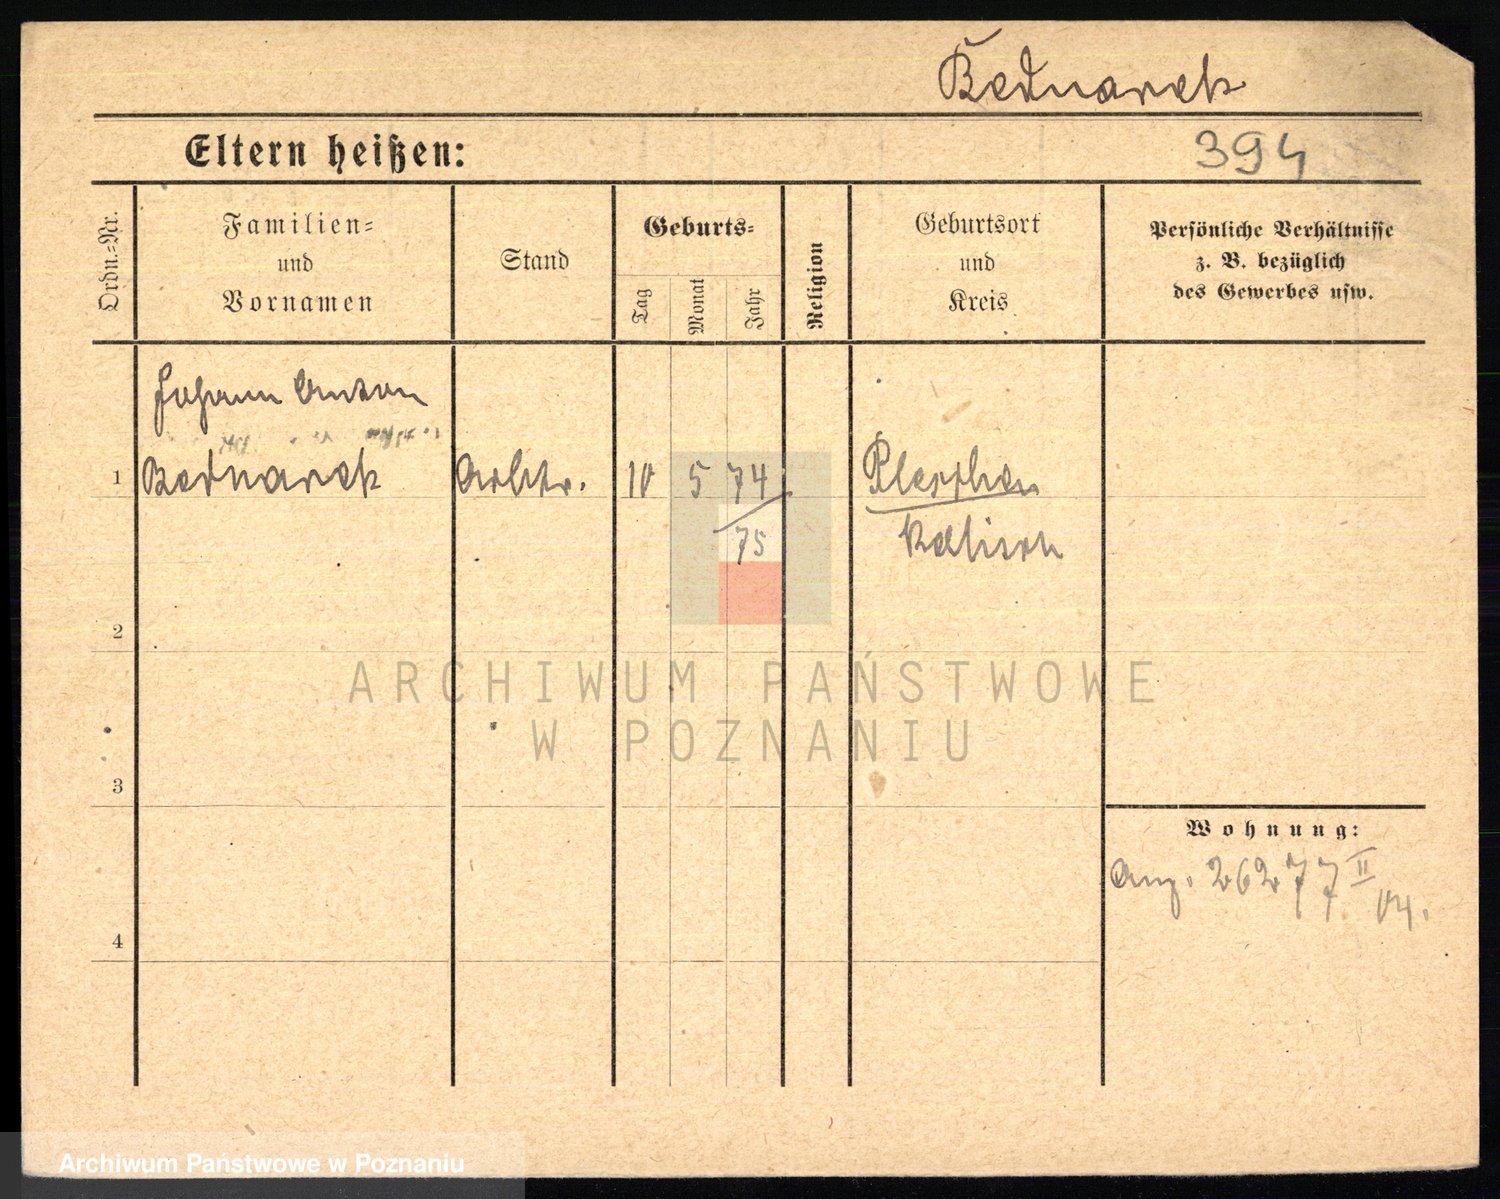 Bednarek
Eltern heißen:
394
Ordn.-Nr.
Familien-
und
Vornamen
Stand
Geburts-
Tag
Monat
Jahr
Religion
Geburtsort
und
Kreis
Persönliche Verhältnisse
z. B. bezüglich
des Gewerbes usw.
Johann Anton
1 Bednarek Arbtr. 10 5 74 Pleschen
75 Kalisch
2
ARCHIWUM PAŃSTWOWE
W POZNANIU
3
Wohnung:
Anz. 26277 II 04.
4
Archiwum Państwowe w Poznaniu